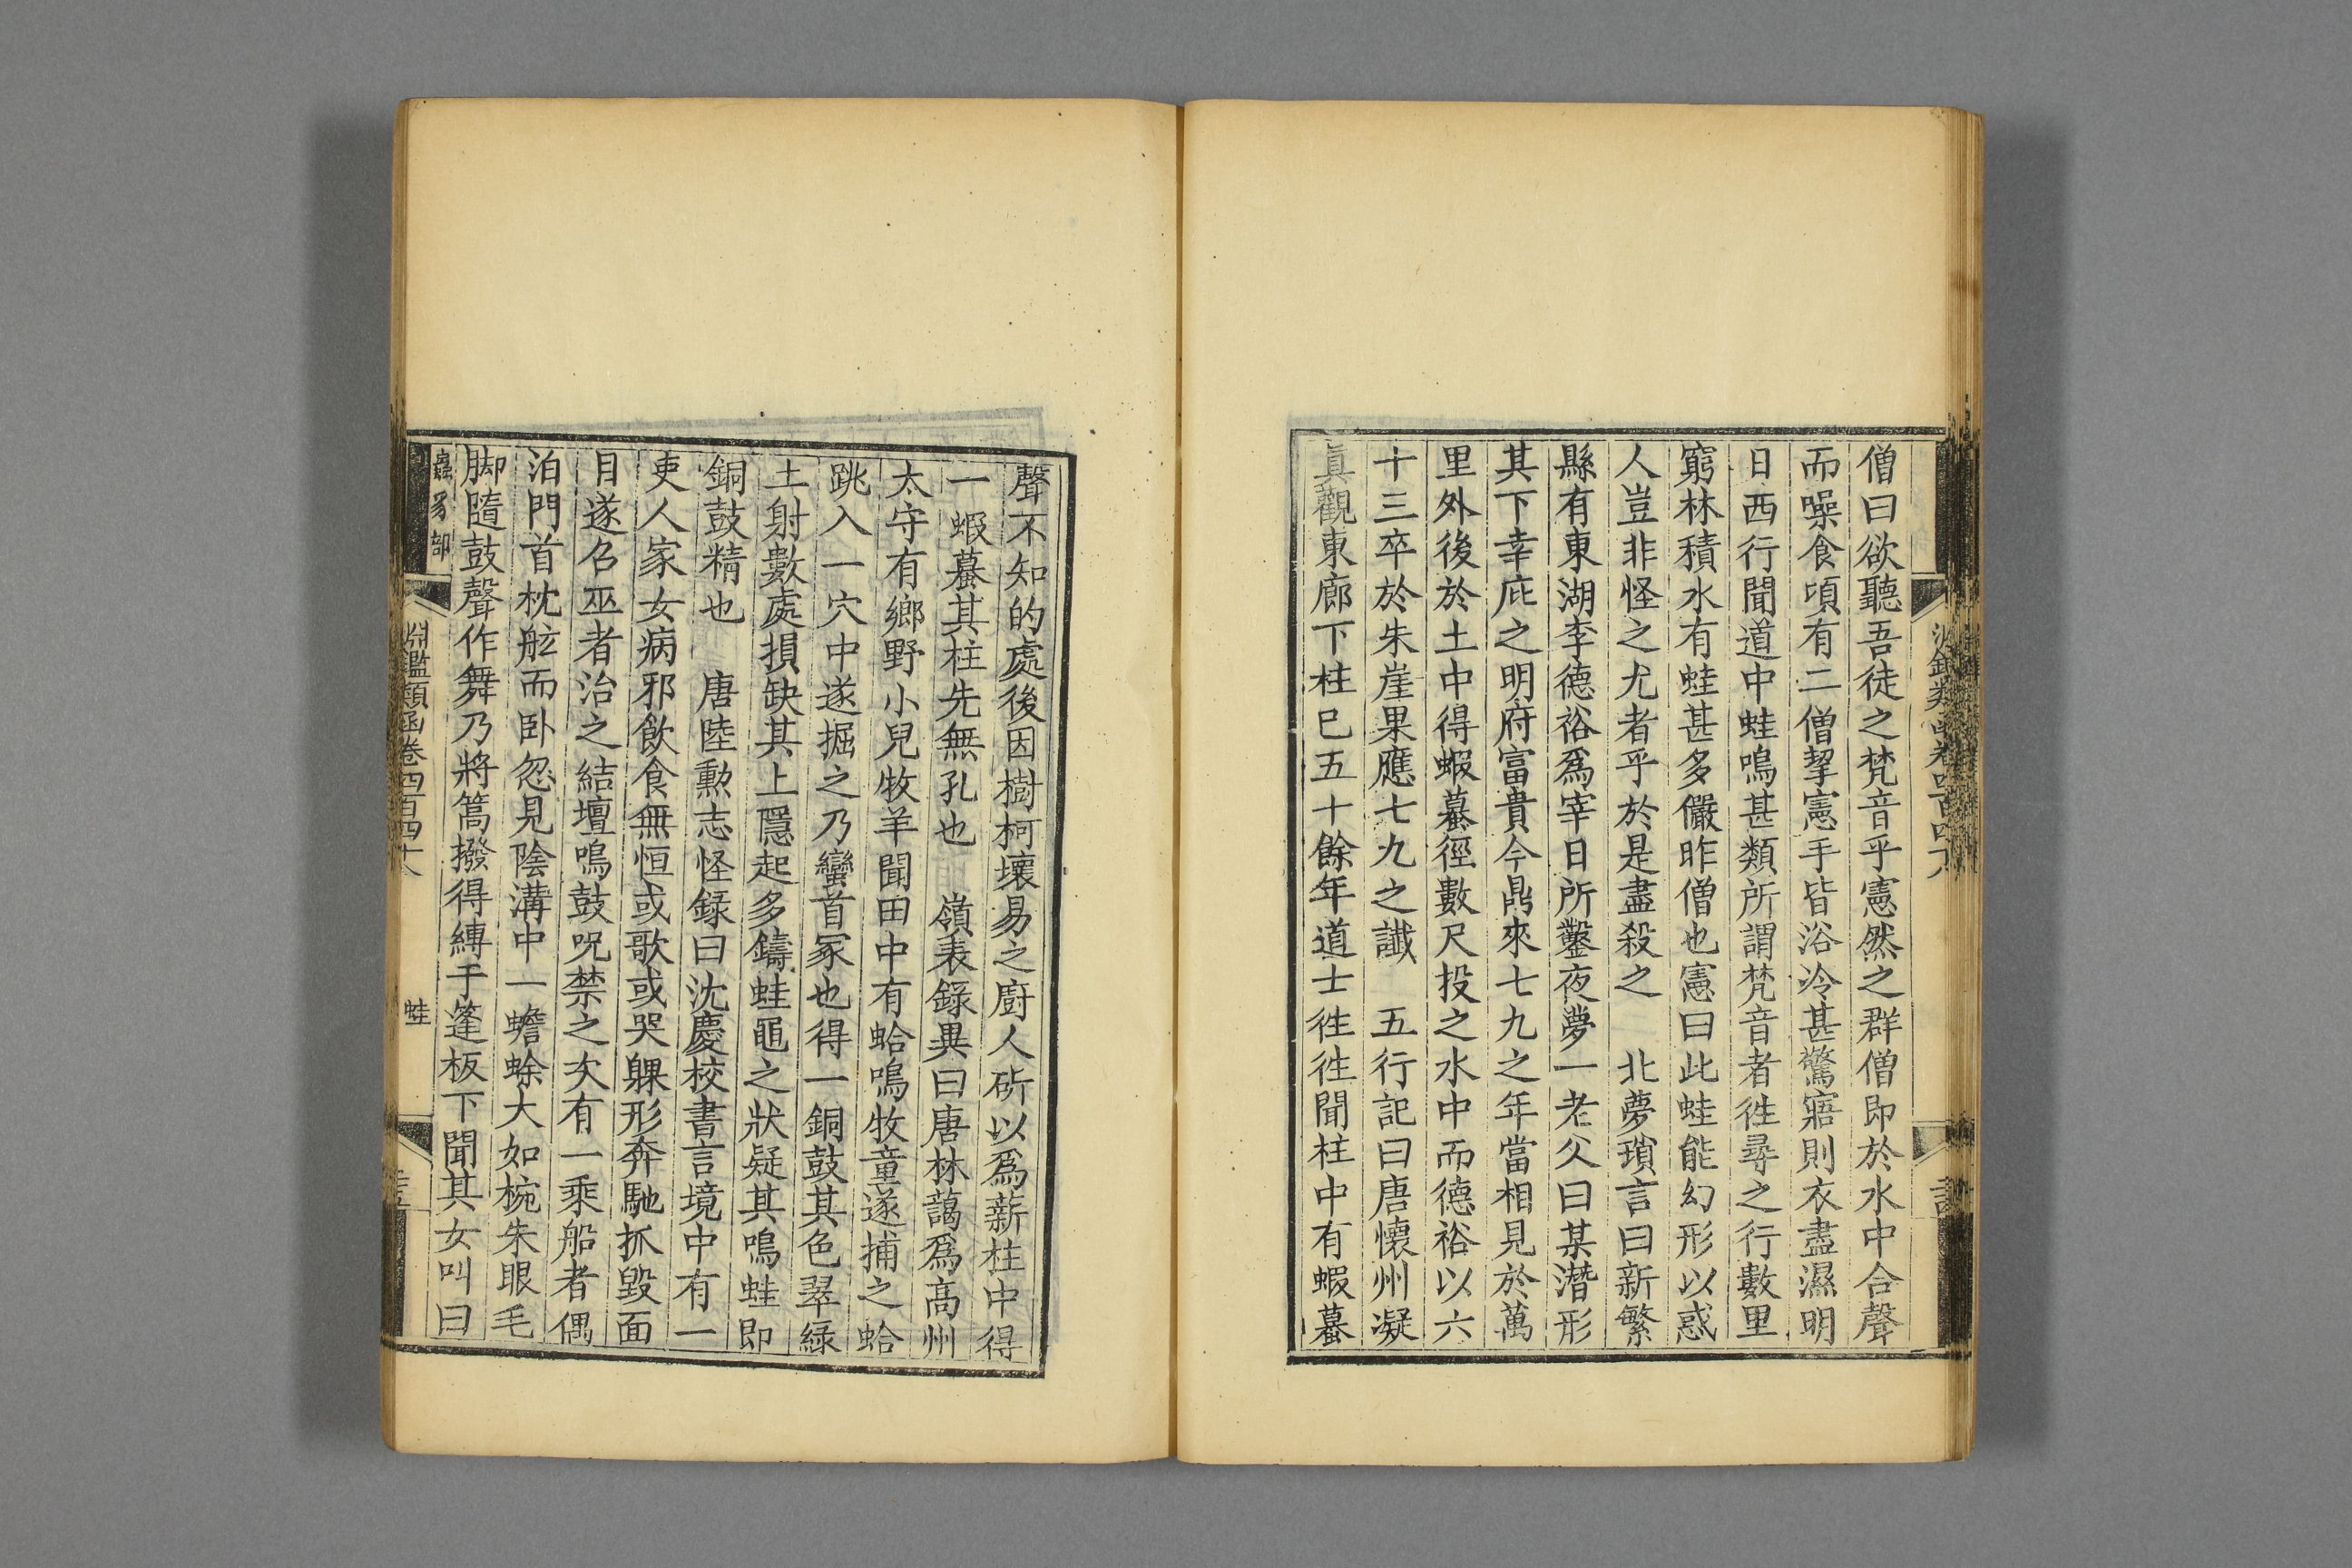 僧曰欲聽吾徒之梵音乎憲然之群僧即於水中合聲
而噪食頃有二僧挈憲手皆浴冷甚驚寤則衣盡濕明
日西行聞道中蛙鳴甚類所謂梵音者徃尋之行數里
窮林積水有蛙甚多儼昨僧也憲曰此蛙能幻形以惑
人豈非怪之尤者乎於是盡殺之　北夢瑣言曰新繁
縣有東湖李德裕爲宰日所鑿夜夢一老父曰某潛形
其下幸庇之明府富貴今鼎來七九之年當相見於萬
里外後於土中得蝦蟇徑數尺投之水中而德裕以六
十三卒於朱崖果應七九之讖　五行記曰唐懷州凝
真觀東廊下柱巳五十餘年道士徃徃聞柱中有蝦蟇
聲不知的處後因樹柯壞易之廚人斫以爲薪柱中得
一蝦蟇其柱先無孔也　嶺表錄異曰唐林藹爲高州
太守有鄉野小兒牧羊聞田中有蛤鳴牧童遂捕之蛤
跳入一穴中遂掘之乃蠻首冢也得一銅鼓其色翠綠
土射數處損缺其上隱起多鑄蛙黽之狀疑其鳴蛙即
銅鼓精也　唐陸勲志怪録曰沈慶校書言境中有一
吏人家女病邪飲食無恒或歌或哭躶形奔馳抓毀面
目遂名巫者治之結壇鳴鼓呪禁之次有一乘船者偶
泊門首枕舷而卧忽見陰溝中一蟾蜍大如椀朱眼毛
脚隨鼓聲作舞乃將篙撥得縛于篷板下聞其女叫曰
蟲豸部
淵鑑類函卷四百四十八
蛙